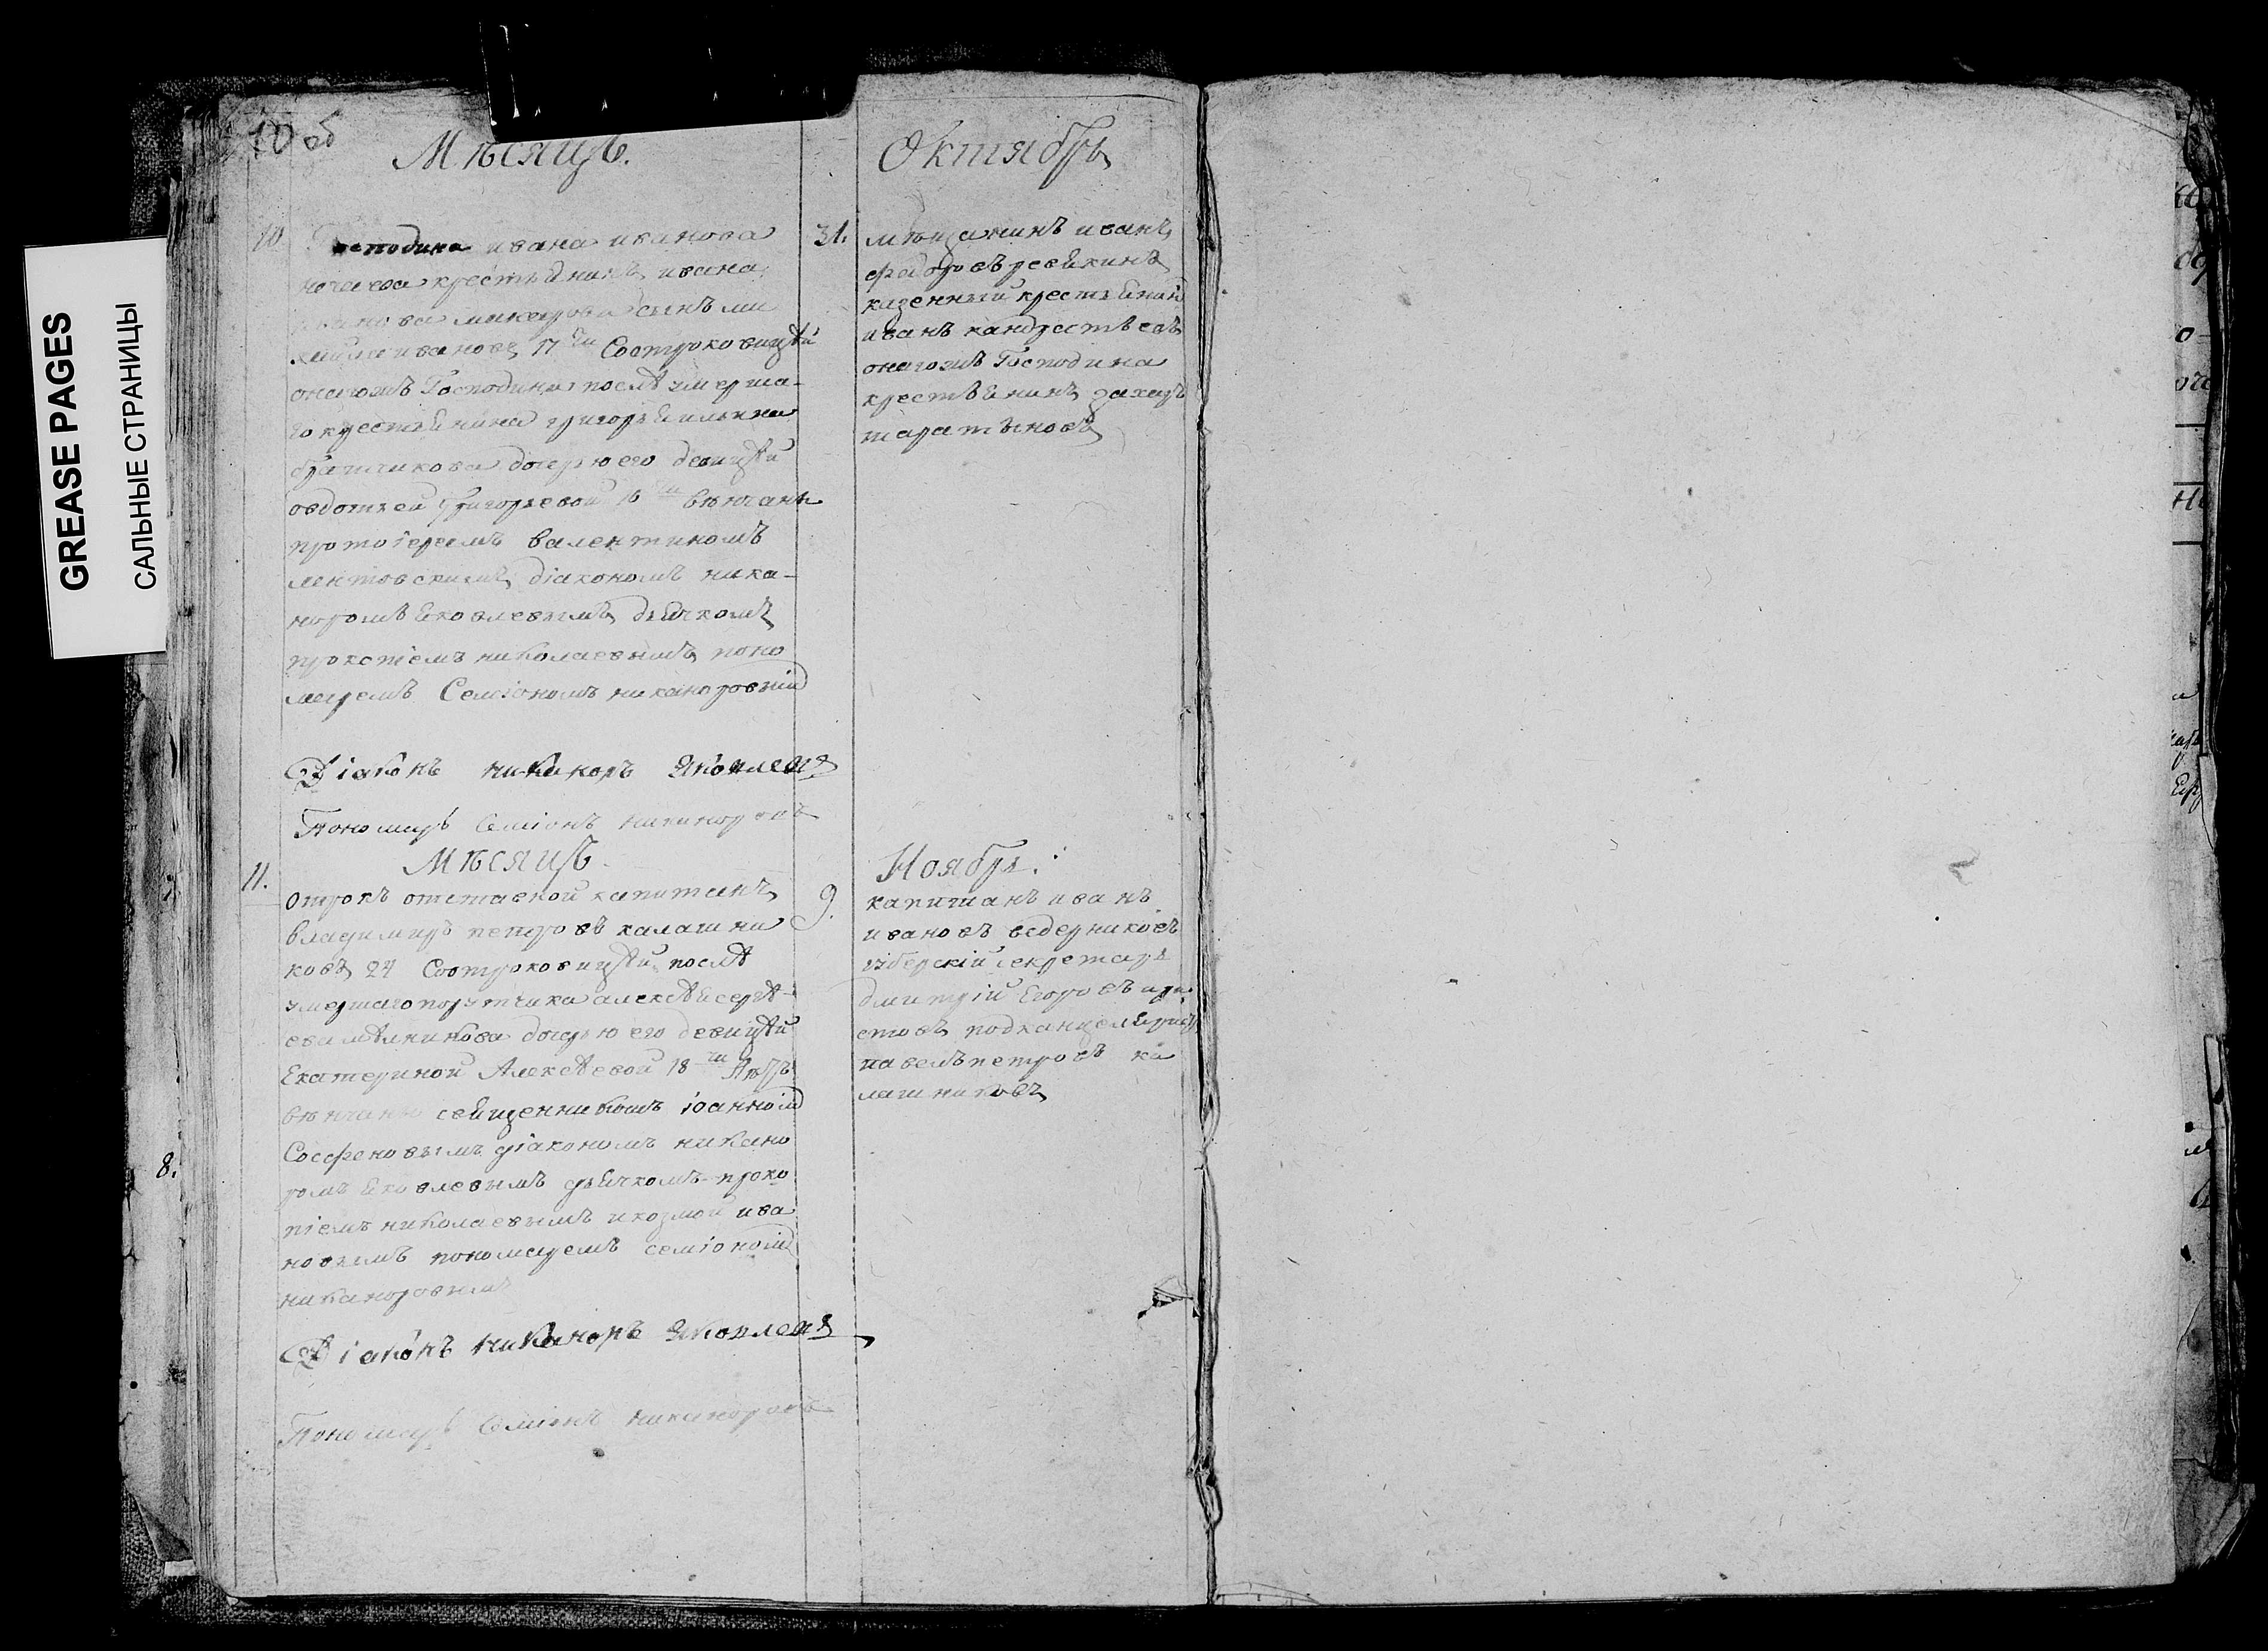 GREASE PAGES
САЛЬНЫЕ СТРАНИЦЫ
10 об
Мѣсяцъ.
Октябрь
10
Господина ивана иванова
крестьянинъ ивана
сынъ ми
хаила ивановъ 17 ти Сотроковицѣй
оногожъ Господина послѣ умерша-
го крестьянина григорья ильина
дочерью его девицѣй
овдотьей Григорьевой 16 ти вѣнчаны
протоіереемъ валентиномъ
діакономъ ника-
норомъ яковлевымъ дьячкомъ
прокопіемъ николаевымъ поно
маремъ Семіономъ никаноровымъ
Діаконъ никаноръ яковлевъ
Пономарь Семіонъ никаноровъ
31.
мѣщанинъ иванъ
федоровъ
казенный крестьянинъ
иванъ
оногожъ Господина
крестьянинъ захаръ
Мѣсяцъ
Ноябрь:
11.
отрокъ отставной капитанъ
владимиръ петровъ калашни
ковъ 24 Соотроковицѣй послѣ
умершаго порутчика алексѣя сергѣ-
ева дочерью его девицѣй
Екатериной Алексѣевой 18 ти лѣтъ
вѣнчаны священникомъ іоанномъ
діакономъ никано
ромъ яковлевымъ дьячкомъ проко
піемъ николаевымъ и козмой ива
новымъ пономаремъ семіономъ
никаноровымъ
Діаконъ никаноръ яковлевъ
Пономарь Семіонъ никаноровъ
9.
капитанъ иванъ
ивановъ ведерниковъ
губерскій секретарь
дмитрій Егоровъ
подканцеляристъ
павелъ петровъ ка
лашниковъ
8.